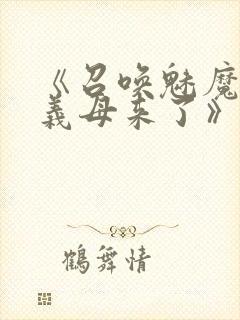 《召唤魅魔
義母来了》
鶴舞情